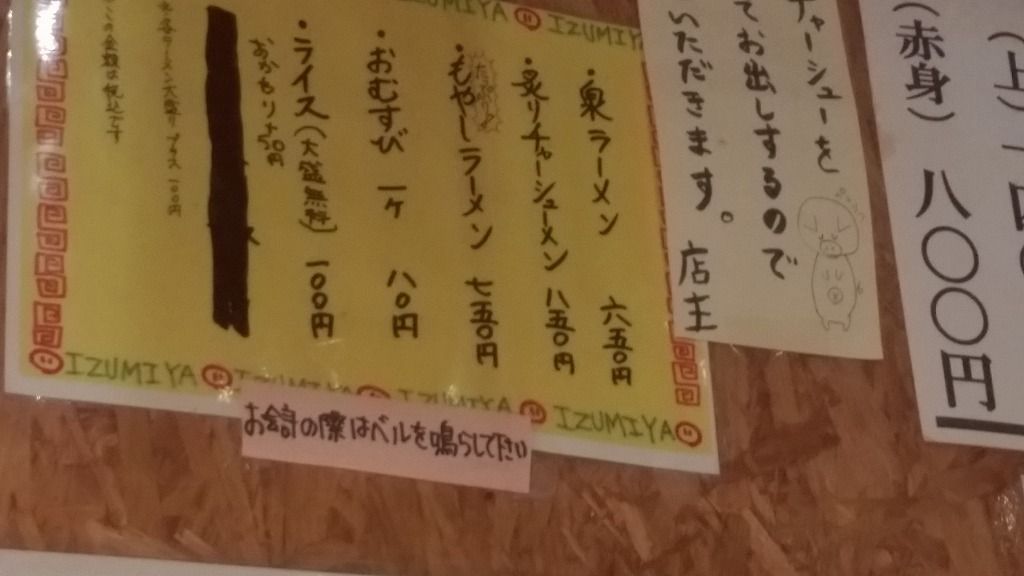 (上)一四〇
(赤身) 八〇〇円
チャーシューを
てお出しするので
いただきます。 店主
IZUMIYA IZUMIYA
・泉ラーメン 六五〇円
・炙りチャーシューメン 八五〇円
・もやしラーメン 七五〇円
・おむすび 一ケ 八〇円
・ライス(大盛無料) 一〇〇円
おかわり+50円
各ラーメン大盛りプラス 100円
の金額は税込です
IZUMIYA IZUMIYA IZUMIYA
お会計の際はベルを鳴らして下さい